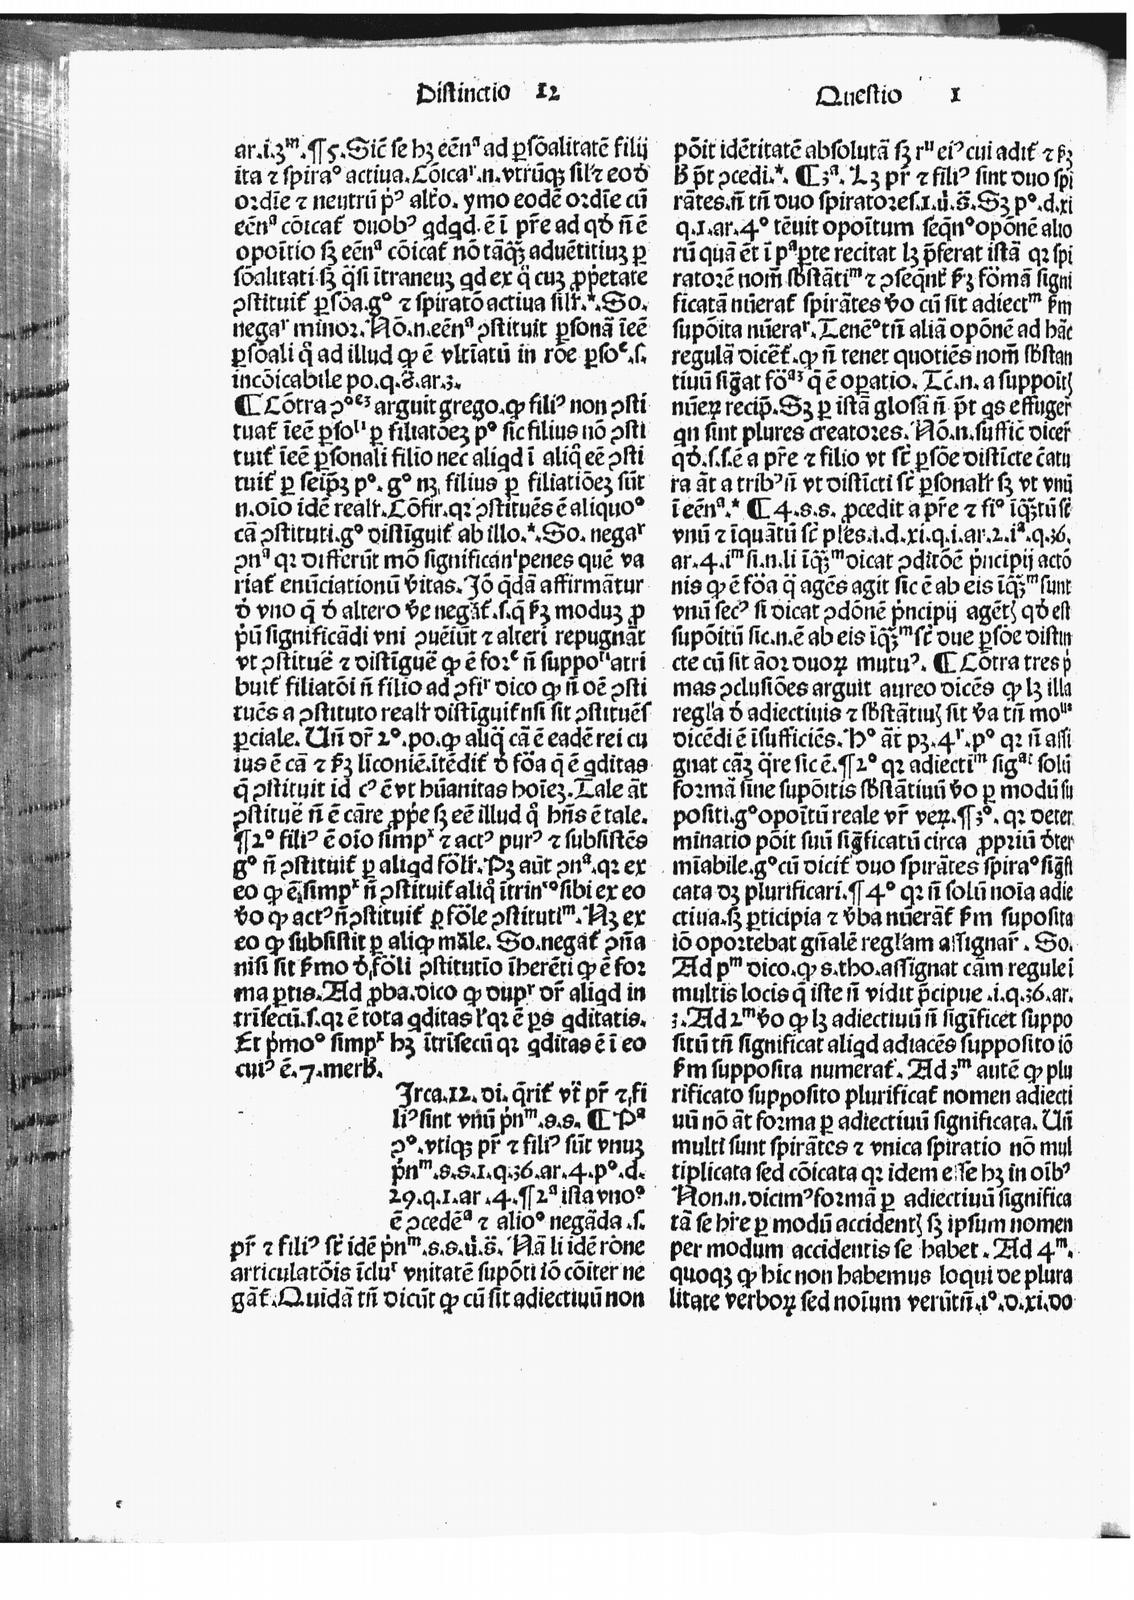 Distinctio 12 Questio 1
ar.i.3ᵐ.¶5.Sic̄ se hꝫ eēnᵃ ad ꝑsōalitatē filij
ita ⁊ spiraº actiua.Cōicaʳ.n.vtrūqꝫ sil'r eoð
ordīe ⁊ neutrū pꝰ alt'o. ymo eodē ordīe cū
eēnᵃ cōicat̄ duobꝰ
opoītio sꝫ eēnᵃ cōicat̄ nō tāqꝫ̄ aduētitiuꝫ ꝑ
sōalitati.sꝫ q̄si ītraneuꝫ qd ex q̄ cuꝫ ꝓp'etate
ꝯstituit̄ ꝑsōa.gº ⁊ spiratō actiua sil'r.*.So.
negaʳ minor.Nō.n.eēnᵃ ꝯstituit ꝑsonā īeē
ꝑsōali q̄ ad illud ꝙ ē vltīatū in rōe ꝑsoᵉ.s.
incōicabile po.q.8.ar.3.
¶ Cōtra arguit grego.ꝙ filiꝰ non ꝯsti
tuat̄ īeē ꝑsoˡⁱ ꝑ filiatōeꝫ pº sic filius nō ꝯsti
tuit̄ īeē ꝑsonali filio nec aliqd ī aliq̄ eē ꝯsti
tuit̄ ꝑ seip̄ꝫ pº.gº nꝫ filius ꝑ filiatiōeꝫ sūt
n.oīo idē real'r.Cōfir.qꝛ ꝯstituēs ē aliquoº
cā ꝯstituti.gº distīguit̄ ab illo.*.So.negaʳ
ꝯnᵃ qꝛ differūt mō significan' penes quē va
riat̄ enūciationū v̄itas.Iō q̄dā affirmātur
ð vno q̄ ð altero v̄e negāt̄.s.q̄ fꝫ moduꝫ ꝓ
p'ū significādi vni ꝯueniūt ⁊ alteri repugnāt
vt ꝯstituē ⁊ distīguē ꝙ ē forᵉ n̄ suppoˡⁱ atri
buit̄ filiatōi n̄ filio ad ꝯfiʳ dico ꝙ n̄ oē ꝯsti
tuēs a ꝯstituto real'r distīguit̄ nsi sit ꝯstituēs
ꝑciale. Un̄ or̄ 2º.po.ꝙ aliq̄ cā ē eadē rei cu
ius ē cā ⁊ fꝫ līconiē.ītēdit̄ ð fōa q̄ ē qditas
q̄ ꝯstituit id ē vt hūanitas hoīeꝫ.Tale āt
ꝯstituē n̄ ē cāre ꝓp'e sꝫ eē illud q̄ hn̄s ē tale.
¶2º filiꝰ ē oīo simpˣ ⁊ actꝰ purꝰ ⁊ subsistēs
gº n̄ ꝯstituit̄ ꝑ aliqd fōl'r.Pꝫ aūt ꝯnᵃ.qꝛ ex
eo ꝙ ē simpˣ n̄ ꝯstituit̄ aliq̄ ītrinᶜº sibi ex eo
v̄o ꝙ actꝰ n̄ ꝯstituit̄ ꝑ fōle ꝯstitutiᵐ.Nꝫ ex
eo ꝙ subsistit ꝑ aliqꝙ māle. So.negat̄ ꝯn̄a
nisi sit f'mo ð fōli ꝯstitutio īherēti ꝙ ē for
ma ꝑtis.Ad ꝓba.dico ꝙ dupʳ or̄ aliqd in
trīsecū.s.qꝛ ē tota qditas l'qꝛ ē p̄s qditatis.
Et p'moº simpˣ hꝫ ītrīsecū qꝛ qditas ē ī eo
cuiꝰ ē.7.merb̄.
Irca.12.di.q̄rit̄ vt̄ pr̄ ⁊ fi
liꝰ sint vnū p'nᵐ.s.s. ¶ Pᵃ
ꝯº.vtiqꝫ pr̄ ⁊ filiꝰ sūt vnuꝫ
p'nᵐ.s.s.1.q.36.ar.4.pº.d.
29.q.1.ar.4.¶2ᵃ ista vnoº
ē ꝯcedēᵃ ⁊ alioº negāda.s.
pr̄ ⁊ filiꝰ sc̄ idē p'nᵐ.s.s.u̇.s̄. Nā li idē rōne
articulatōis īcluʳ vnitatē supōti iō cōiter ne
gāt̄.Quidā tn̄ dicūt ꝙ cū sit adiectiuū non
pōit idētitatē absolutā sꝫ rᵘ eiꝰ cui adit̄ ⁊ fꝫ
ƀ p̄t ꝓcedi.*. ¶3ᵃ. Lꝫ pr̄ ⁊ filiꝰ sint duo spi
rātes.n̄ tn̄ duo spiratores.1.u̇.s̄.Sꝫ pº.d.xi
q.1.ar.4º tēuit opoītum seqn̄º opōnē alio
rū quā ēt ī pᵃ ꝑte recitat lꝫ p̄ferat istā qꝛ spi
ratorē nom̄ sb̄stātiᵐ ⁊ ꝯseqn̄t̄ fꝫ fōmā signi
ficatā nūerat̄ spirātes v̄o cū sit adiectᵐ f'm
supōita nūeraʳ.Tenēº tn̄ aliā opōnē ad hāc
regulā dicēt̄.ꝙ n̄ tenet quotiēs nom̄ sb̄stan
tiuū siḡat q̄ ē oꝑatio. Tē.n. a suppoīt
nūeꝝ recip̄.Sꝫ ꝑ istā glosā n̄ p̄t qs effuger̄
qn sint plures creatores.Nō.n.suffic̄ dicer̄
qð.s.s.ē a pr̄e ⁊ filio vt sc̄ ꝑsōe distīcte ē̄atu
ra āt a tribꝰ n̄ vt distīcti sc̄ ꝑsonal'r sꝫ vt vnū
ī eēnᵃ.* ¶ 4.s.s. ꝓcedit a pr̄e ⁊ fiº
vnū ⁊ īquātū sc̄ pl'es.i.d.xi.q.i.ar.2.iᵃ.q.36.
ar.4.iᵐ si.n.li īq̄ꝫᵐ dicat ꝯditōē p'ncipij actō
nis ꝙ ē fōa q̄ agēs agit sic ē ab eis īq̄ꝫᵐ sunt
vnū secꝰ si dicat ꝯdōnē p'ncipij agēt qð est
supōitū sic.n.ē ab eis īq̄ꝫᵐ sc̄ due ꝑsōe distin
cte cū sit āor duoꝝ mutuꝰ. ¶ Cōtra tres p'
mas ꝯclusiōes arguit aureo dicēs ꝙ lꝫ illa
regl'a ð adiectiuis ⁊ sb̄stātiuꝫ sit v̄a tn̄ moᵘˢ
dicēdi ē īsufficiēs. Hº āt pꝫ.4ʳ.pº qꝛ n̄ assi
gnat cāꝫ q̄re sic ē.¶2º qꝛ adiectiᵐ sigᵃᵗ solū
formā sine supōitis sb̄stātiuū v̄o ꝑ modū su
positi.gº opoītū reale vr̄ veꝝ.¶3º. qꝛ deter
minatio pōit suū siḡficatū circa ꝓpriū ðter
mīabile.gº cū dicit̄ duo spirātes spiraº siḡfi
cata dꝫ plurificari.¶4º qꝛ n̄ solū noīa adie
ctiua.sꝫ ꝑticipia ⁊ v̄ba nūerāt̄ f'm suposita
iō oportebat gn̄alē regl'am assignar̄. So.
Ad pᵐ dico.ꝙ s.tho.assignat cām regule ī
multis locis q̄ iste n̄ vidit p̄cipue.i.q.36.ar.
3.Ad 2ᵐ v̄o ꝙ lꝫ adiectiuū n̄ siḡīficet suppo
sitū tn̄ significat aliqd adiacēs supposito iō
f'm supposita numerat̄. Ad 3ᵐ autē ꝙ plu
rificato supposito plurificat̄ nomen adiecti
uū nō āt forma ꝑ adiectiuū significata. Un̄
multi sunt spirātes ⁊ vnica spiratio nō mul
tiplicata sed cōicata qꝛ idem esse hꝫ in oīb'
Non.n.dicimꝰ formā ꝑ adiectiuū significa
tā se h're ꝑ modū accident sꝫ ipsum nomen
per modum accidentis se habet . Ad 4ᵐ.
quoqꝫ ꝙ hic non habemus loqui de plura
litate verboꝝ sed noīum verūtn̄.iº.d.xi.do